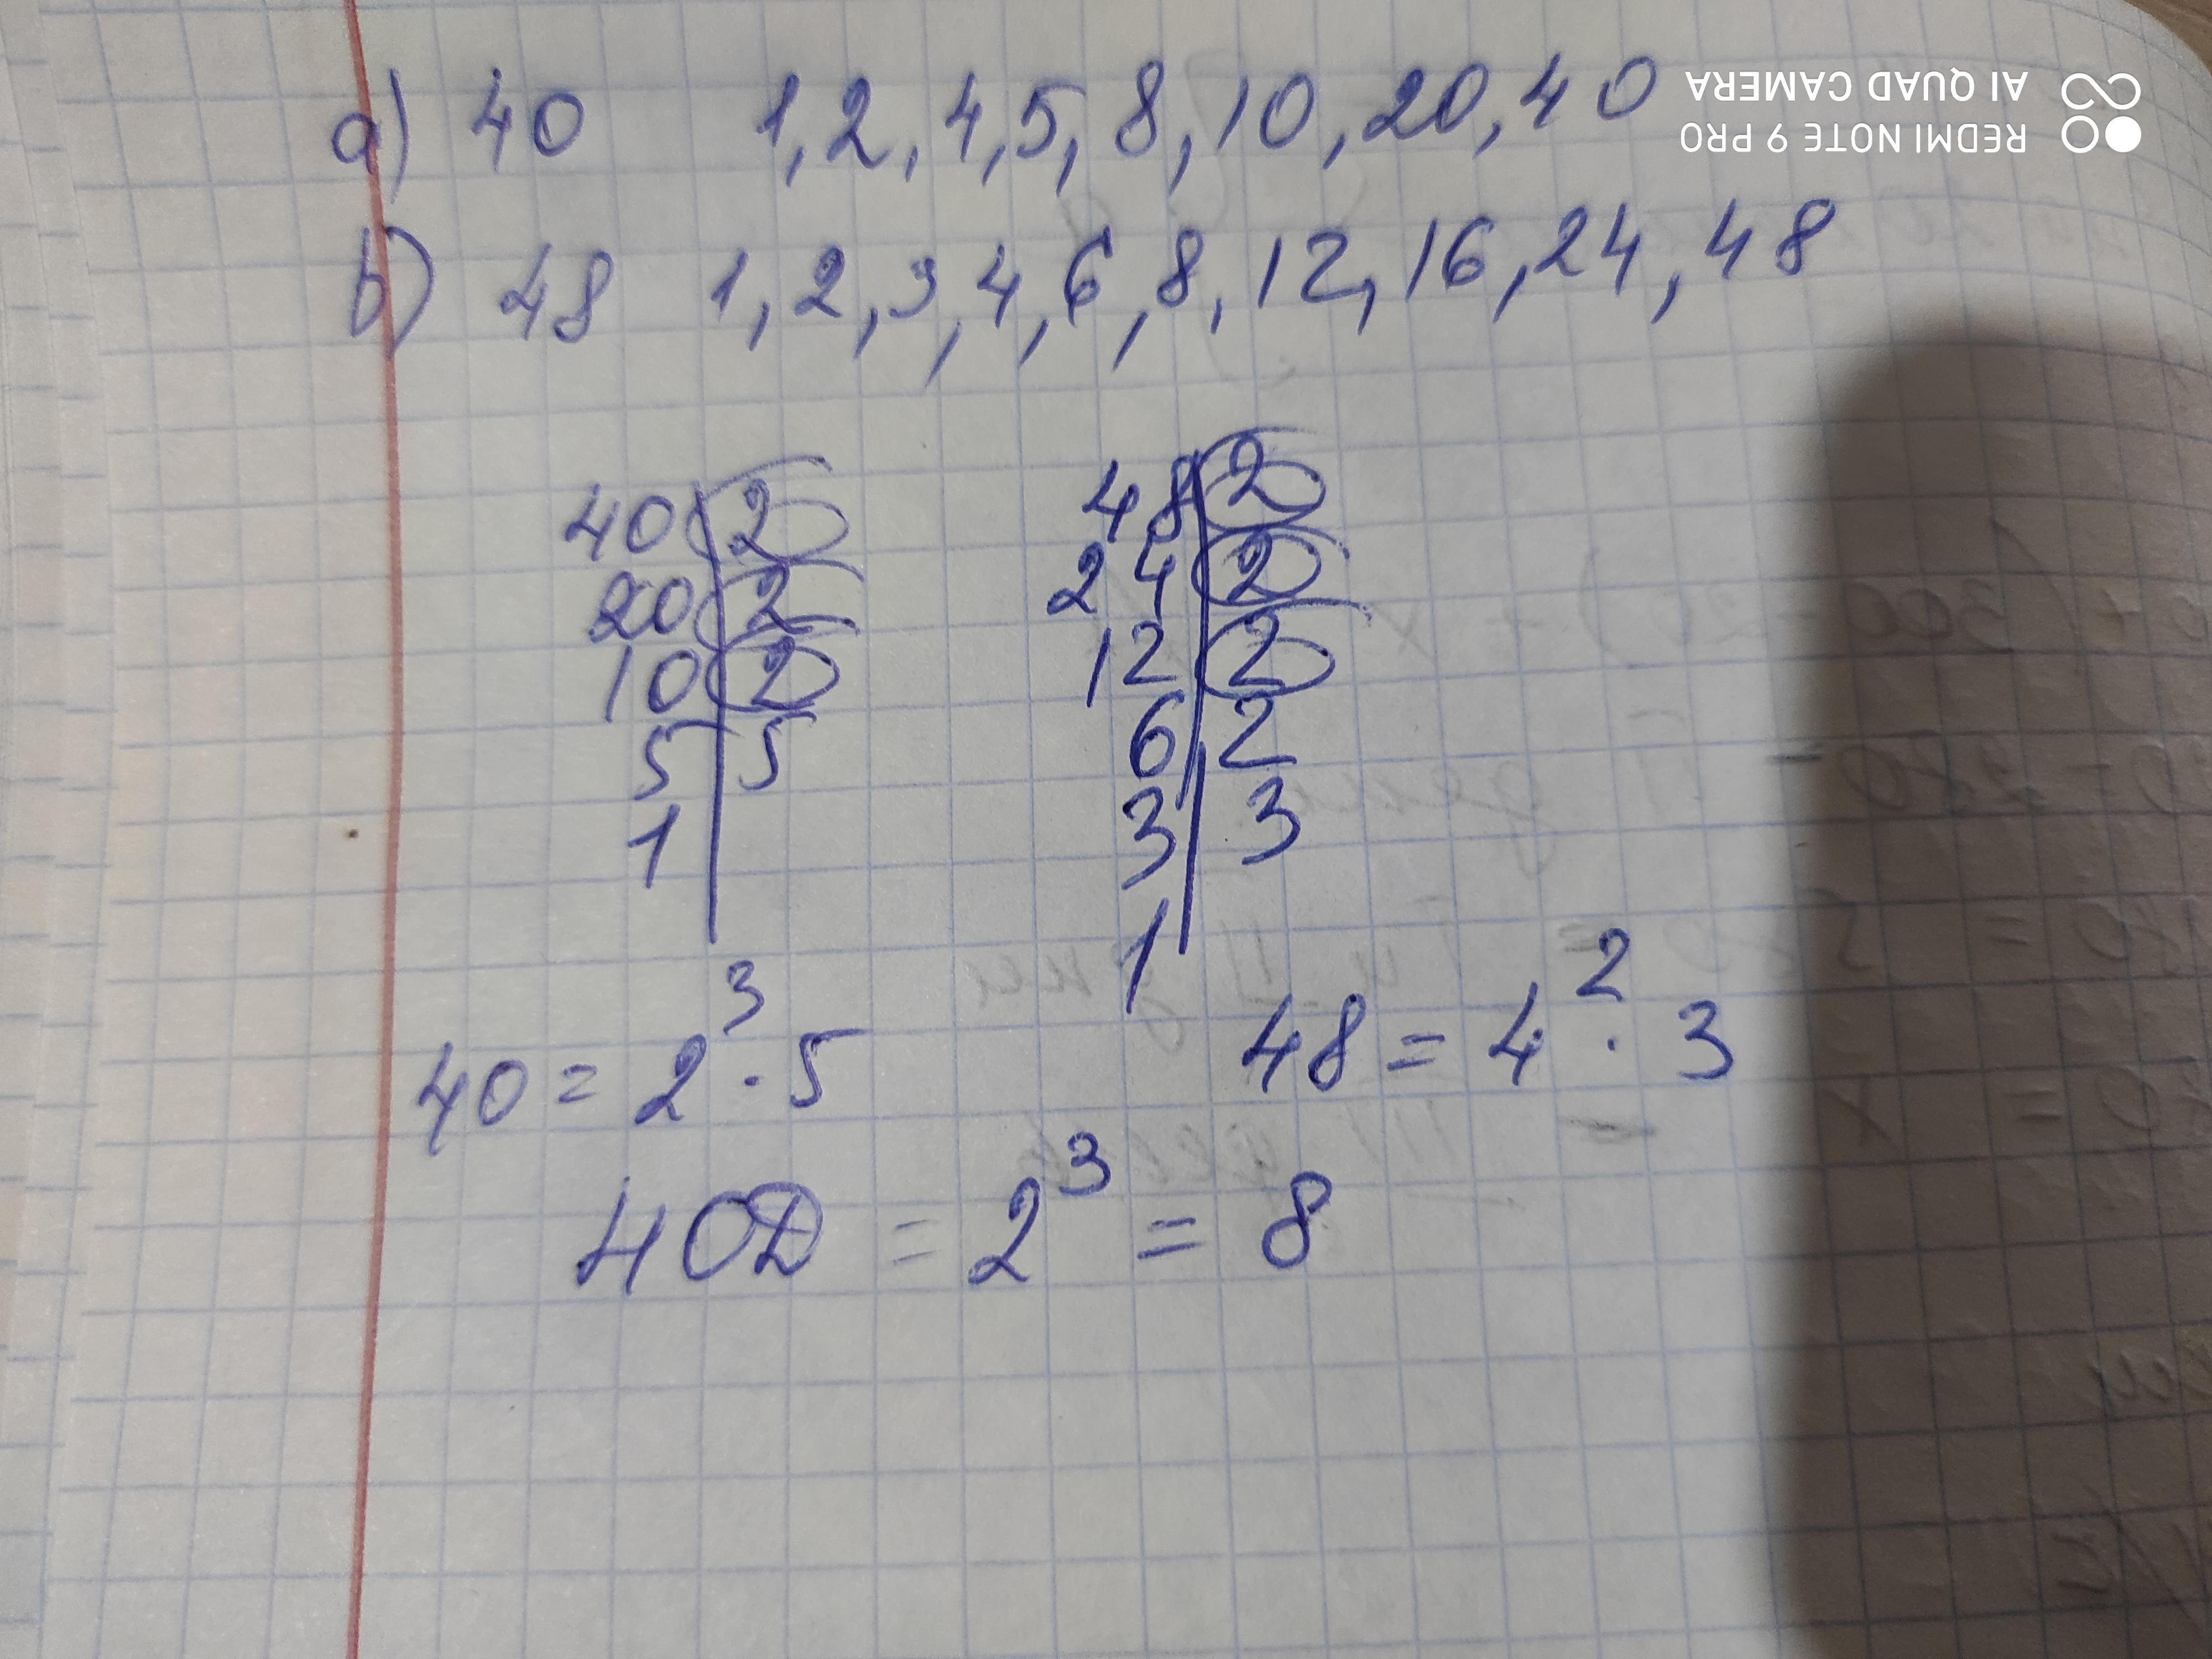 a) 40 1, 2, 4, 5, 8, 10, 20, 40
b) 48 1, 2, 3, 4, 6, 8, 12, 16, 24, 48
REDMI NOTE 9 PRO
AI QUAD CAMERA
40 | 2 48 | 2
20 | 2 24 | 2
10 | 2 12 | 2
5 | 5 6 | 2
1 | 3 | 3
1
40 = 2³ · 5 48 = 4² · 3
НОД = 2³ = 8